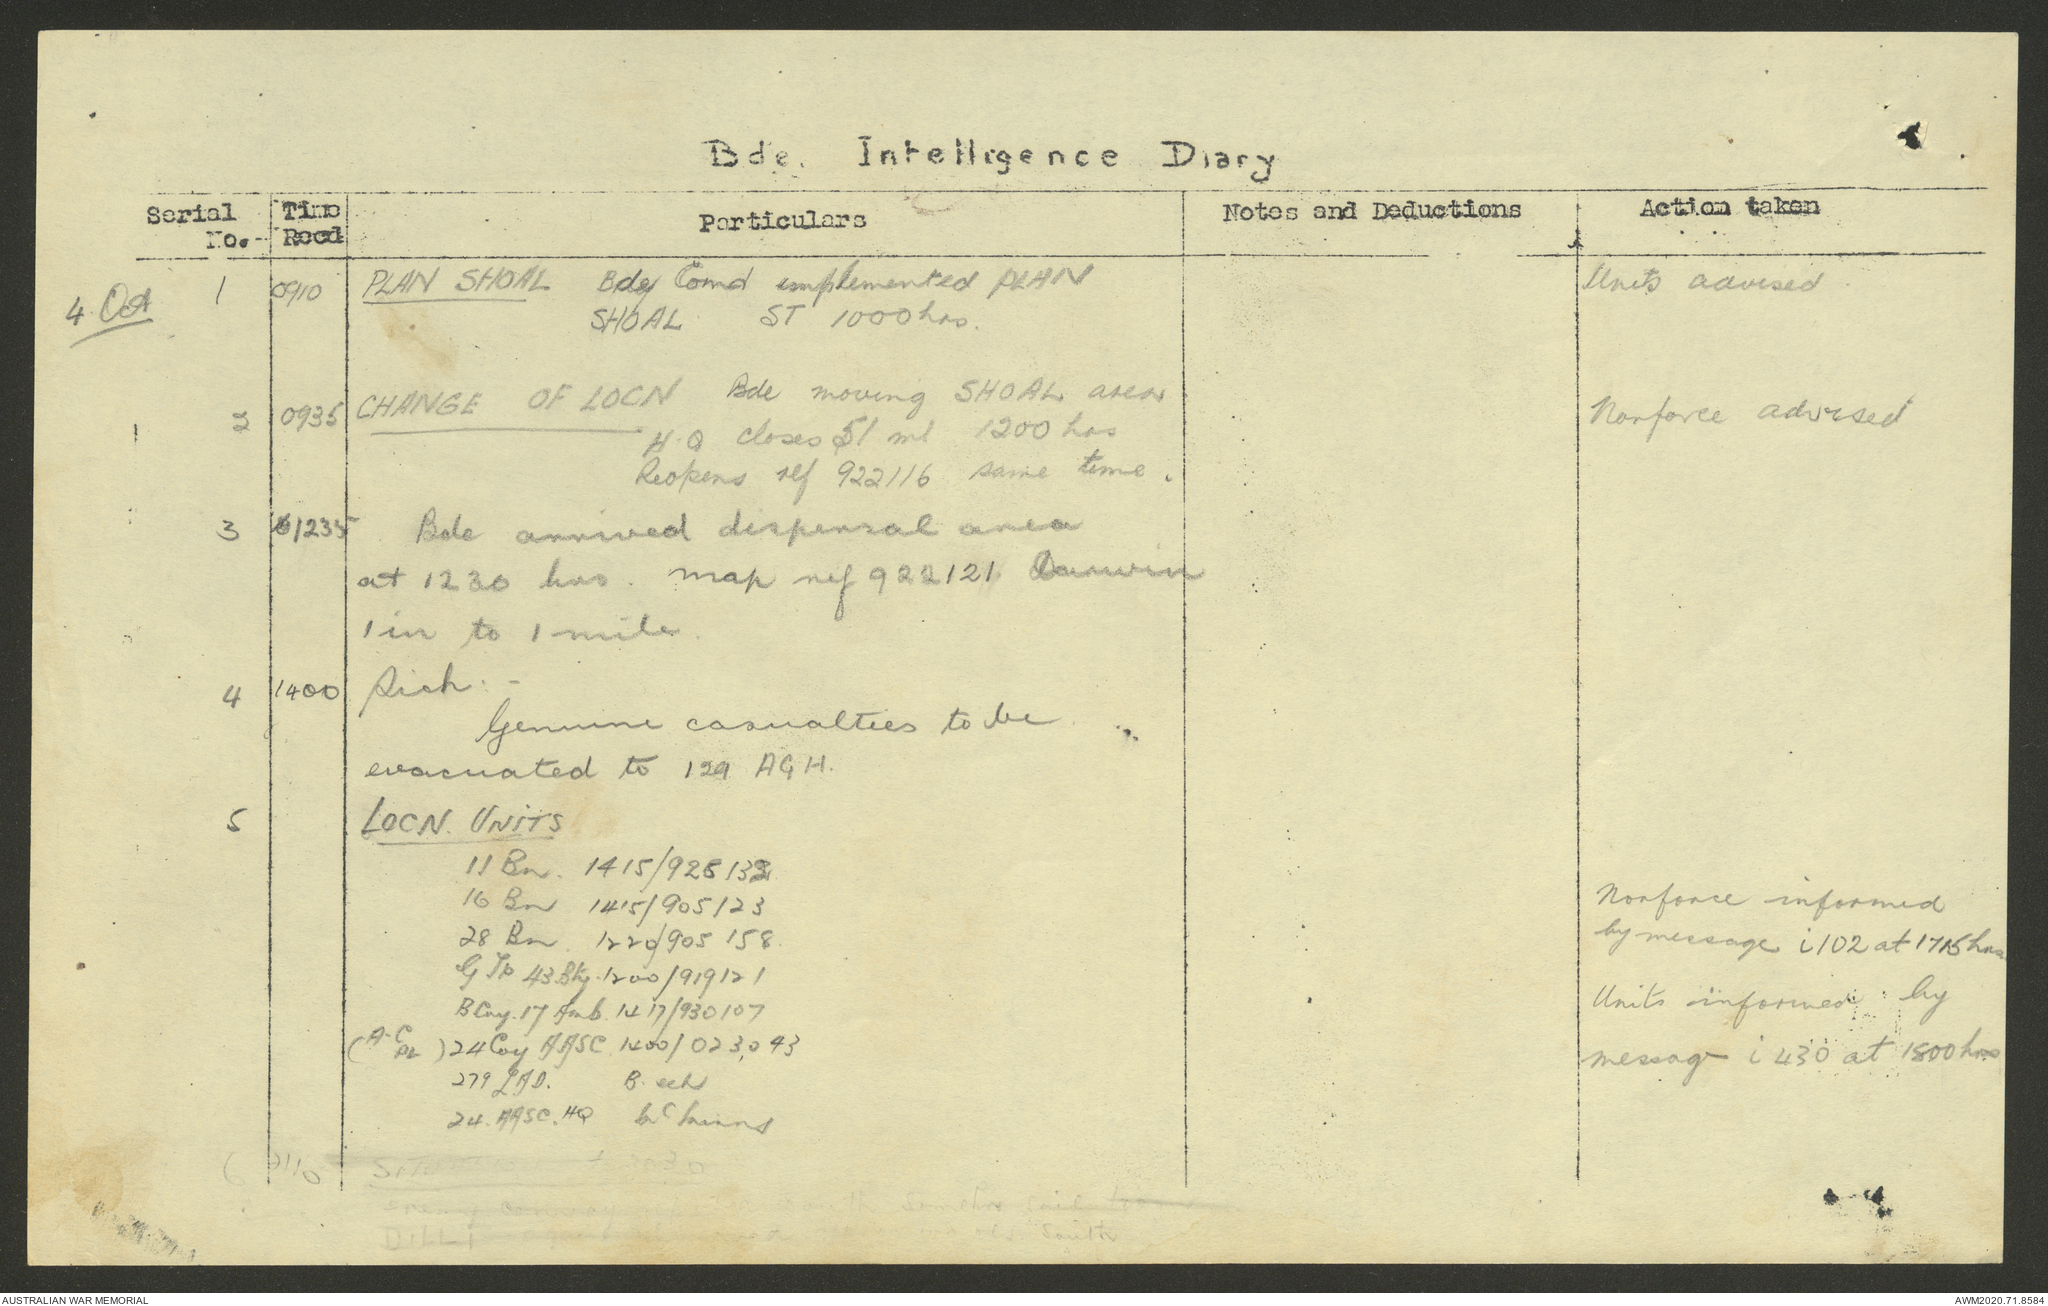 Bde. Intelligence Diary
Serial No. Time Recd Particulars Notes and Deductions Action taken
4 Oct 1 0910 PLAN SHOAL Bde Comd implemented PLAN Units advised
SHOAL ST 1000 hrs.
2 0935 CHANGE OF LOCN Bde moving SHOAL area Norforce advised
H.Q closes 51 ml 1200 hrs
Reopens ref 922116 same time.
3 1235 Bde arrived dispersal area
at 1230 hrs. map ref 922121 Darwin
1 in to 1 mile.
4 1400 Sick:-
Genuine casualties to be
evacuated to 129 AGH.
5 LOCN. UNITS
11 Bn. 1415/925132
16 Bn 1415/905123 Norforce informed
28 Bn 1220/905158 by message i102 at 1715 hrs
G Tp 43 Bty 1200/919121 Units informed by
B Coy. 17 Amb. 1417/930107
(A-C PL) 24 Coy AASC 1400/023,043 message i 430 at 1800 hrs
279 LAD. B. ech
24. AASC. HQ
2110 SITUATION
enemy convoy
DILLI south
AUSTRALIAN WAR MEMORIAL AWM2020.71.8584